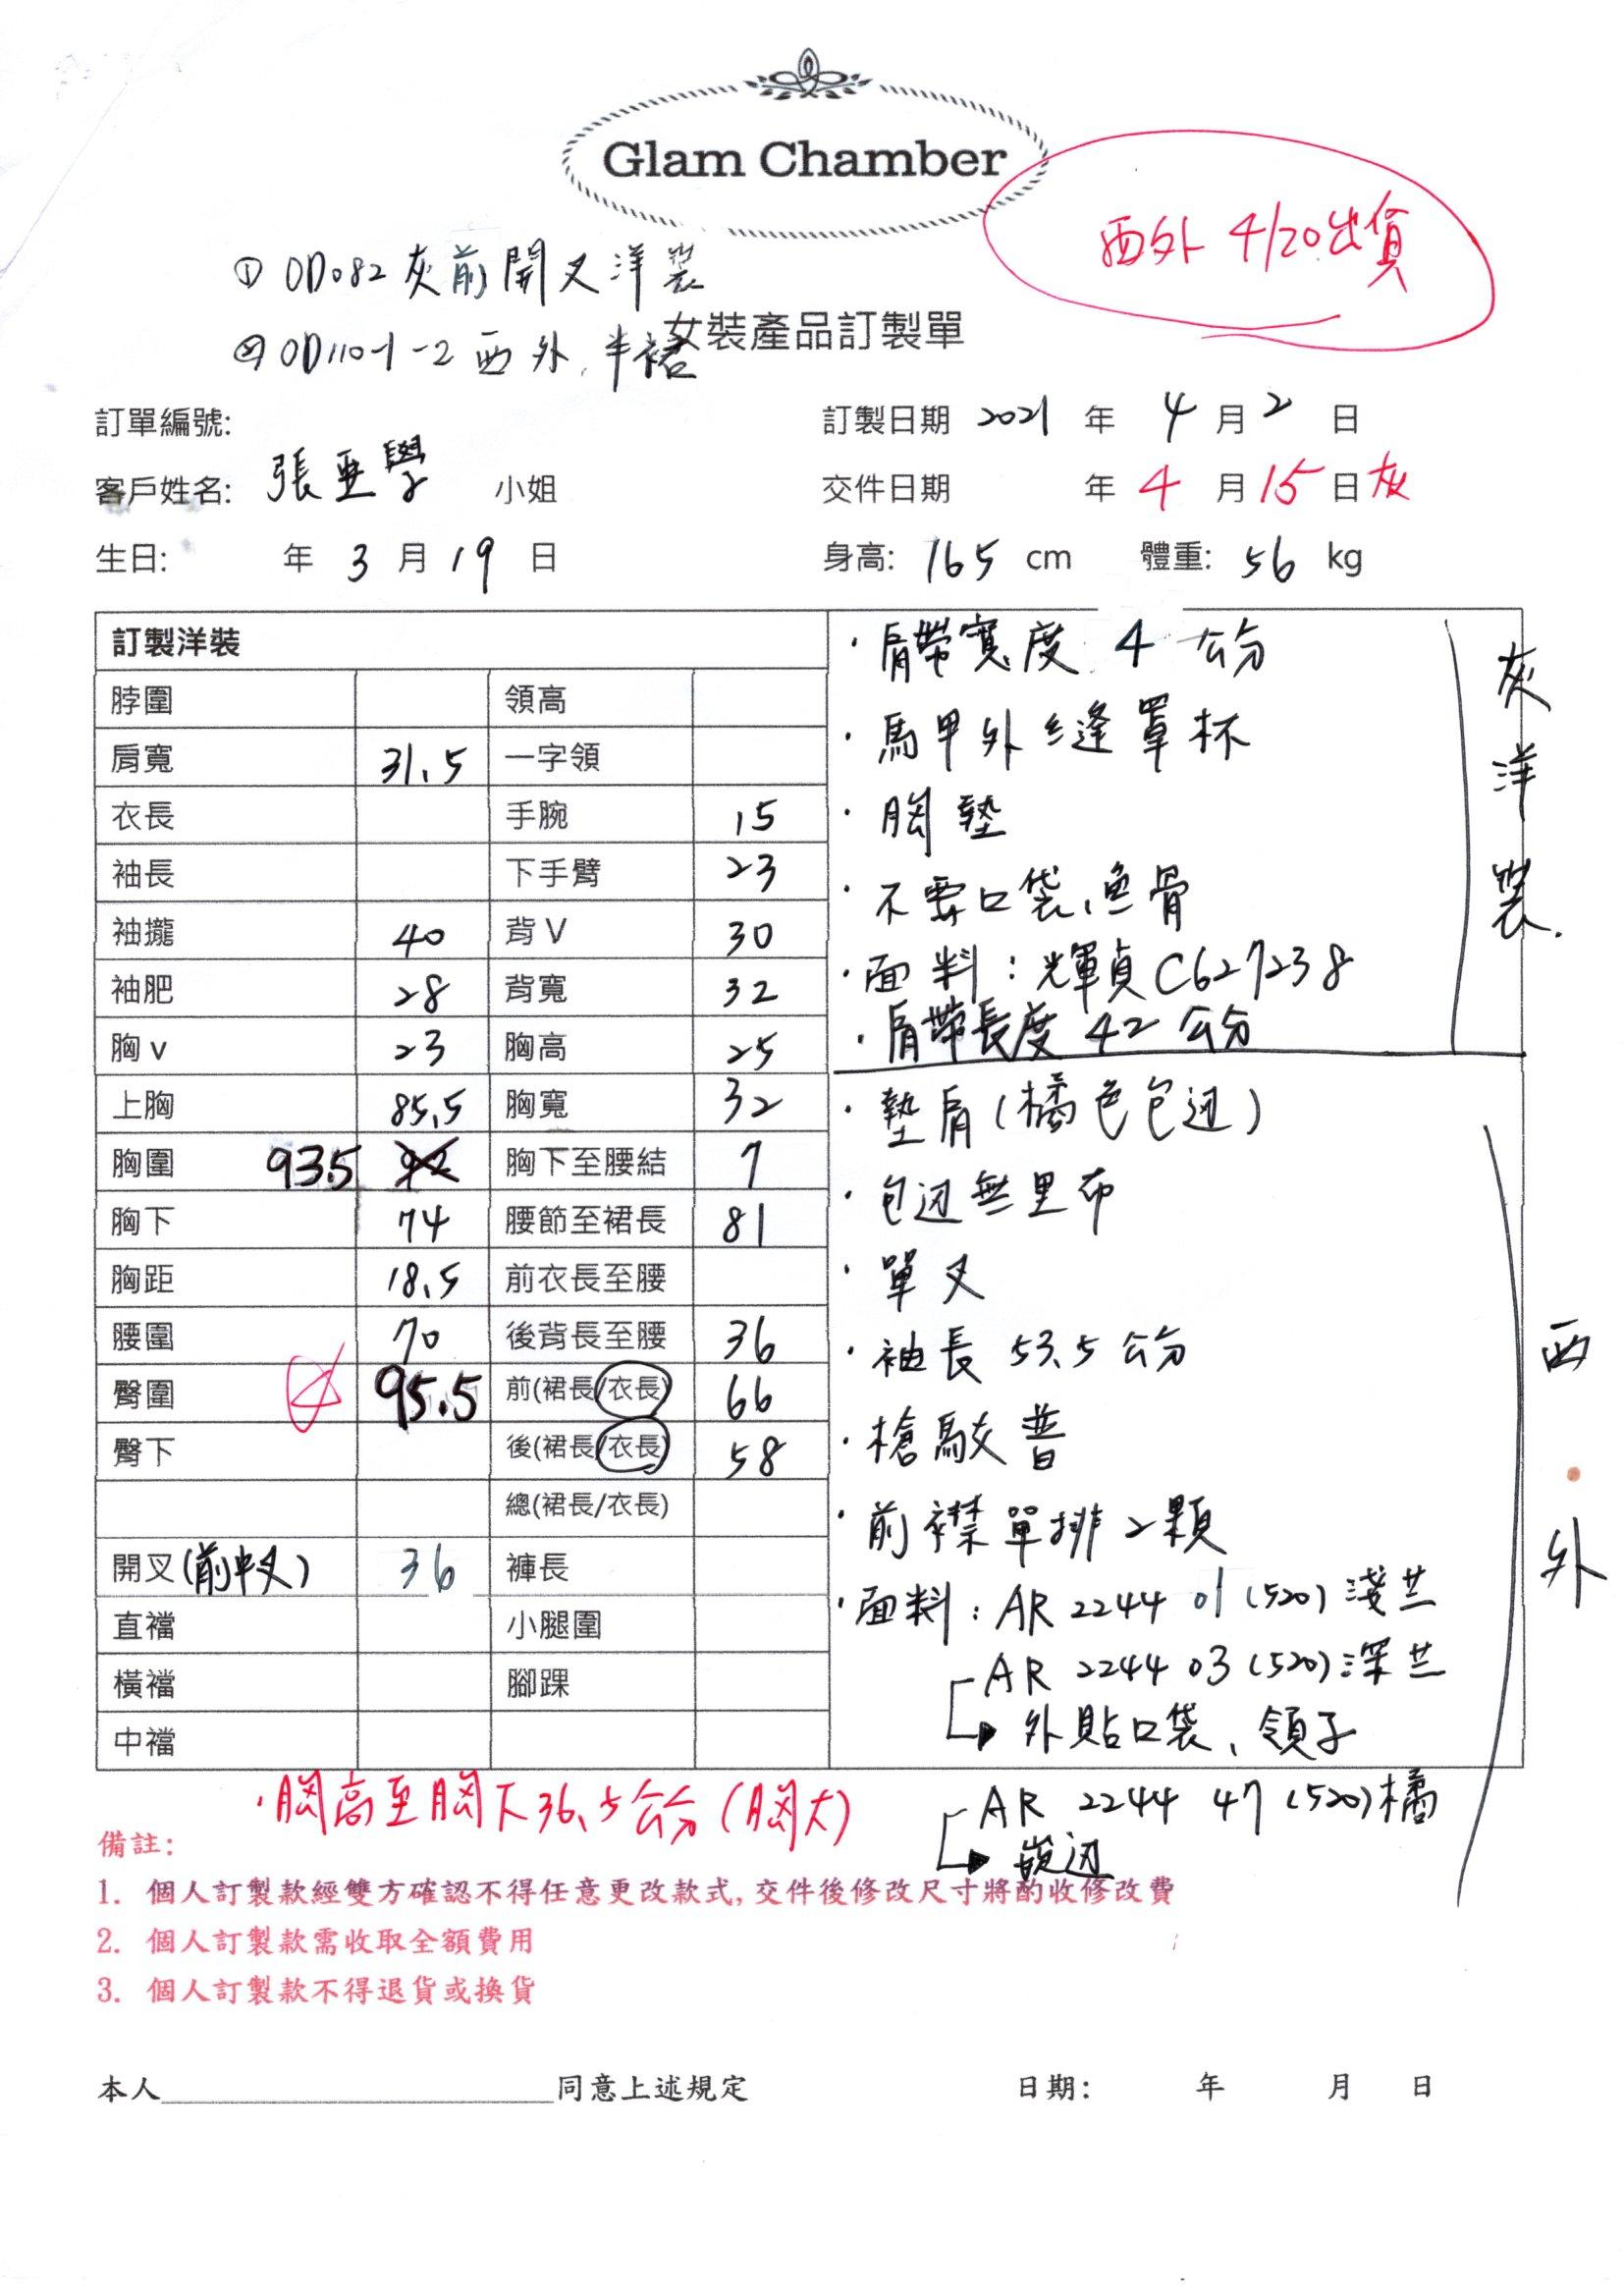 Glam Chamber
西外 4/20出貨
① OD082 灰前開叉洋裝
② OD110-1-2 西外、半裙
女裝產品訂製單
訂單編號: 訂製日期 2021 年 4 月 2 日
客戶姓名: 張亞學 小姐 交件日期 年 4 月 15 日 灰
生日: 年 3 月 19 日 身高: 165 cm 體重: 56 kg
訂製洋裝
脖圍 領高
肩寬 31.5 一字領
衣長 手腕 15
袖長 下手臂 23
袖攏 40 背V 30
袖肥 28 背寬 32
胸v 23 胸高 25
上胸 85.5 胸寬 32
胸圍 93.5 92 胸下至腰結 7
胸下 74 腰節至裙長 81
胸距 18.5 前衣長至腰
腰圍 70 後背長至腰 36
臀圍 95.5 前(裙長/衣長) 66
臀下 後(裙長/衣長) 58
總(裙長/衣長)
開叉(前中叉) 36 褲長
直襠 小腿圍
橫襠 腳踝
中襠
·肩帶寬度 4 公分
·馬甲外縫罩杯
·胸墊
·不要口袋、魚骨
·面料:輝貞C627238
·肩帶長度 42 公分
灰洋裝.
·墊肩(橘色包边)
·包边無里布
·單叉
·袖長 53.5 公分
·槍駁普
·前襟單排2顆
·面料:AR 2244 01 (520) 淺兰
AR 2244 03 (520) 深兰
外貼口袋、領子
AR 2244 47 (520) 橘
嵌边
西外
·胸高至胸下36.5公分(胸大)
備註:
1. 個人訂製款經雙方確認不得任意更改款式, 交件後修改尺寸將酌收修改費
2. 個人訂製款需收取全額費用
3. 個人訂製款不得退貨或換貨
本人 同意上述規定 日期: 年 月 日